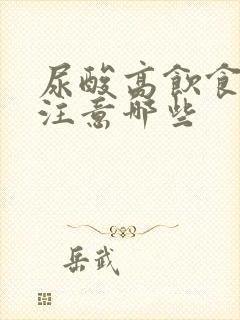 尿酸高飲食
注意哪些
岳武